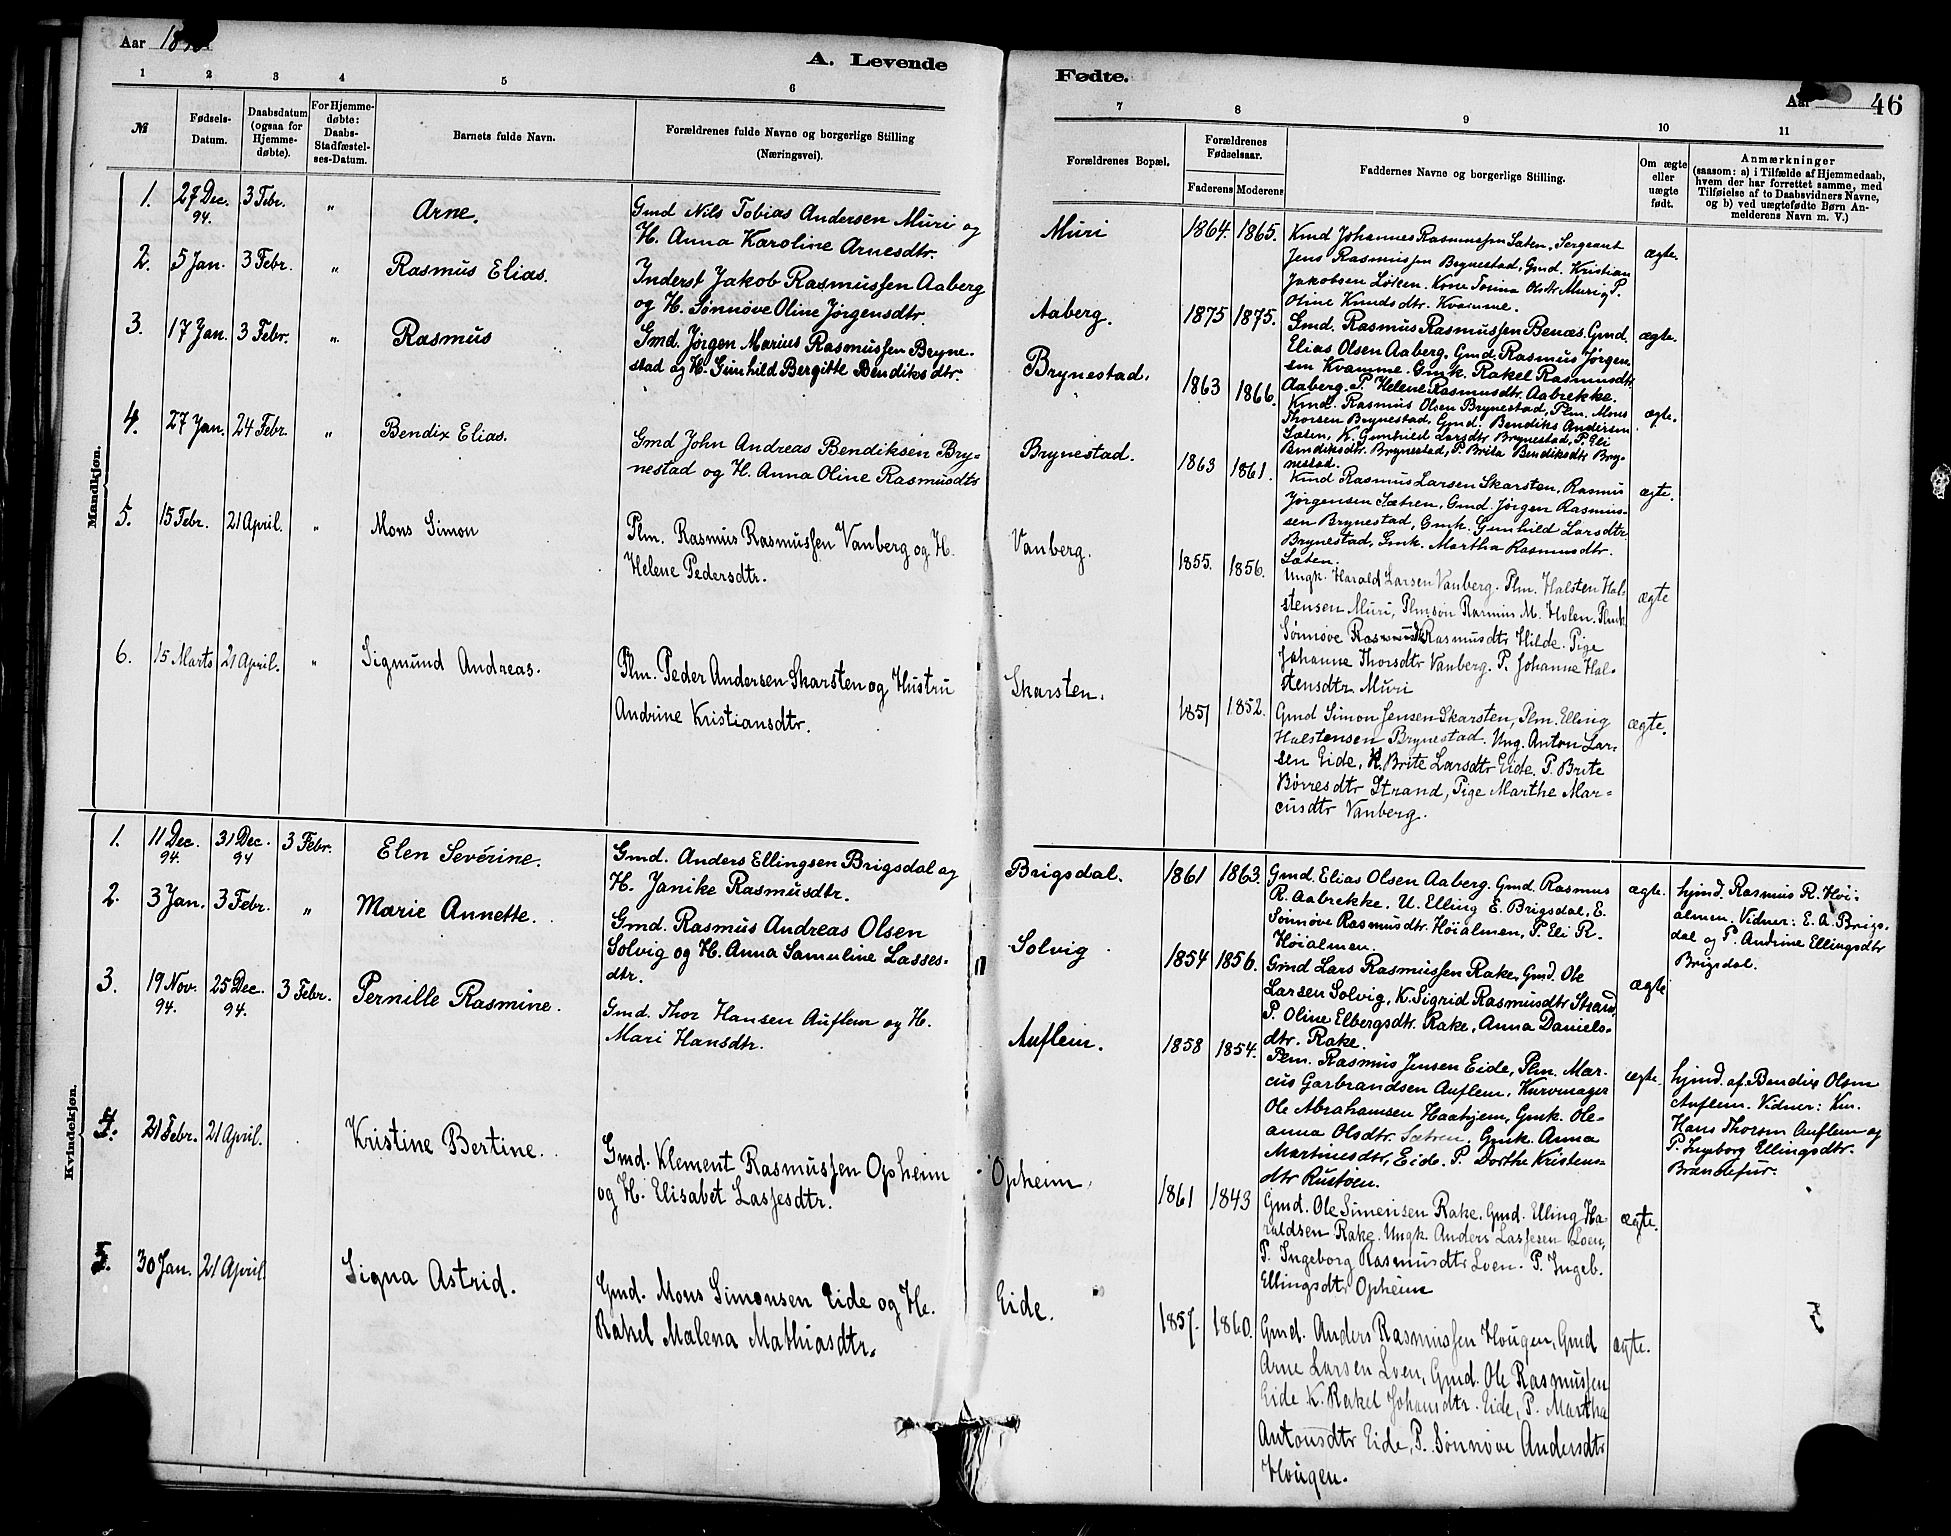 Aar 18
A. Levende
1 2 3 4 5 6
№
Fødsels-
Datum.
Daabsdatum
(ogsaa for
Hjemme-
døbte).
For Hjemme-
døbte:
Daabs-
Stadfæstel-
ses-Datum.
Barnets fulde Navn.
Forældrenes fulde Navne og borgerlige Stilling
(Næringsvei).
Mandkjøn.
1. 27 Dec. 94. 3 Febr. " Arne.
Gmd Nils Tobias Andersen Muri og
H. Anna Karoline Arnesdtr.
2. 5 Jan. 3 Febr. " Rasmus Elias.
Inderst Jakob Rasmussen Aaberg
og H. Sønnøve Oline Jørgensdtr.
3. 17 Jan. 3 Febr. " Rasmus
Gmd. Jørgen Marius Rasmussen Bryne-
stad og H. Gunhild Bergitte Bendiksdtr.
4. 27 Jan. 24 Febr. " Bendix Elias.
Gmd John Andreas Bendiksen Bry-
nestad og H. Anna Oline Rasmusdtr
5. 15 Febr. 21 April. " Mons Simon
Plm. Rasmus Rasmussen Vanberg og H.
Helene Pedersdtr.
6. 15 Marts 21 April. " Sigmund Andreas.
Plm. Peder Andersen Skarsten og Hustru
Andrine Kristiansdtr.
Kvindekjøn.
1. 11 Dec. 94. 31 Dec. 94 3 Febr. Elen Severine.
Gmd. Anders Ellingsen Brigsdal og
H. Janike Rasmusdtr.
2. 3 Jan. 3 Febr. " Marie Annette.
Gmd. Rasmus Andreas Olsen
Solvig og H. Anna Samuline Lasses-
dtr.
3. 19 Nov. 94. 25 Dec. 94. 3 Febr. Pernille Rasmine.
Gmd. Thor Hansen Auflem og H.
Mari Hansdtr.
4. 21 Febr. 21 April. Kristine Bertine.
Gmd. Klement Rasmussen Opheim
og H. Elisabet Lassesdtr.
5. 30 Jan. 21 April. Signa Astrid.
Gmd. Mons Simonsen Eide og H.
Rakel Malena Mathiasdtr.
Fødte.
Aar 46
7 8 9 10 11
Forældrenes Bopæl.
Forældrenes
Fødselsaar.
Faderens Moderens
Faddernes Navne og borgerlige Stilling.
Om ægte
eller
uægte
født.
Anmærkninger
(saasom: a) i Tilfælde af Hjemmedaab,
hvem der har forrettet samme, med
Tilføielse af to Daabsvidners Navne,
og b) ved uægtefødte Børn An-
melderens Navn m. V.)
Muri 1864. 1865. ægte.
Kmd Johannes Rasmussen Sæten, Sergeant
Jens Rasmussen Brynestad, Gmd. Kristian
Jakobsen Løken. Kone Tomina Olsdtr Muri, P.
Oline Knudsdtr. Kvamme.
Aaberg. 1875 1875. ægte.
Gmd. Rasmus Rasmussen Benæs. Gmd.
Elias Olsen Aaberg. Gmd. Rasmus Jørgen-
sen Kvamme. Gmk. Rakel Rasmusdtr.
Aaberg. P. Helene Rasmusdtr. Aabrekke.
Brynestad. 1863 1866. ægte.
Kmd. Rasmus Olsen Brynestad, Plm. Mons
Thorsen Brynestad, Gmd. Bendiks Andersen
Sæten, K. Gunhild Larsdtr Brynestad, P. Eli
Bendiksdtr. Brynestad, P. Brita Bendiksdtr Bry-
nestad.
Brynestad. 1863 1861. ægte.
Kmd Rasmus Larsen Skarsten, Rasmus
Jørgensen Sætren, Gmd. Jørgen Rasmus-
sen Brynestad, Gmk. Gunhild Larsdtr
Brynestad, Gmk. Martha Rasmusdtr.
Sæten.
Vanberg. 1855. 1856. ægte
Ungk. Harald Larsen Vanberg. Plm. Halsten Hal-
stensen Muri, Plmsøn Rasmus M. Holen.
Sønnøve Rasmusdtr Hilde. Pige
Johanne Thorsdtr Vanberg. P. Johanne Hal-
stensdtr. Muri
Skarsten. 1851 1852. ægte.
Gmd Simon Jensen Skarsten, Plm. Elling
Halstensen Brynestad. Ung. Anton Lar-
sen Eide, K. Brite Larsdtr Eide. P. Brite
Børresdtr Strand, Pige Marthe Mar-
cusdtr Vanberg.
Brigsdal. 1861 1863. ægte.
Gmd. Elias Olsen Aaberg. Gmd. Rasmus
R. Aabrekke. U. Elling E. Brigsdal, E.
Sønnøve Rasmusdtr. Høialmen, P. Eli R.
Høialmen.
hjmd. Rasmus R. Høi-
almen. Vidner: E. A. Brigs-
dal og P. Andrine Ellingsdtr
Brigsdal.
Solvig 1854 1856. ægte
Gmd Lars Rasmussen Rake, Gmd. Ole
Larsen Solvig, K. Sigrid Rasmusdtr Strand,
P. Oline Elbergsdtr. Rake, Anna Daniels-
dtr. Rake.
Auflem. 1858 1854. ægte.
Plm. Rasmus Jensen Eide, Plm. Mar-
cus Garbrandsen Auflem, Kurvmager
Ole Abrahamsen Haahjem, Gmk. Ole-
anna Olsdtr. Sætren. Gmk. Anna
Martinesdtr, Eide. P. Dorthe Kristens-
dtr Rustøen.
hjmd. af Bendix Olsen
Auflem. Vidner: Km.
Hans Thorsen Auflem og
P. Ingborg Ellingsdtr.
Opheim. 1861 1843 ægte.
Gmd. Ole Simensen Rake. Gmd. Elling Ha-
raldsen Rake. Ungk. Anders Lassesen Loen,
P. Ingeborg Rasmusdtr Loen. P. Ingeb.
Ellingsdtr Opheim
Eide. 1857. 1860. ægte.
Gmd. Anders Rasmussen Hougen, Gmd
Arne Larsen Loen, Gmd. Ole Rasmussen
Eide K. Rakel Johansdtr. Eide, P. Martha
Antonsdtr Eide, P. Sønnøve Andersdtr
Hougen.